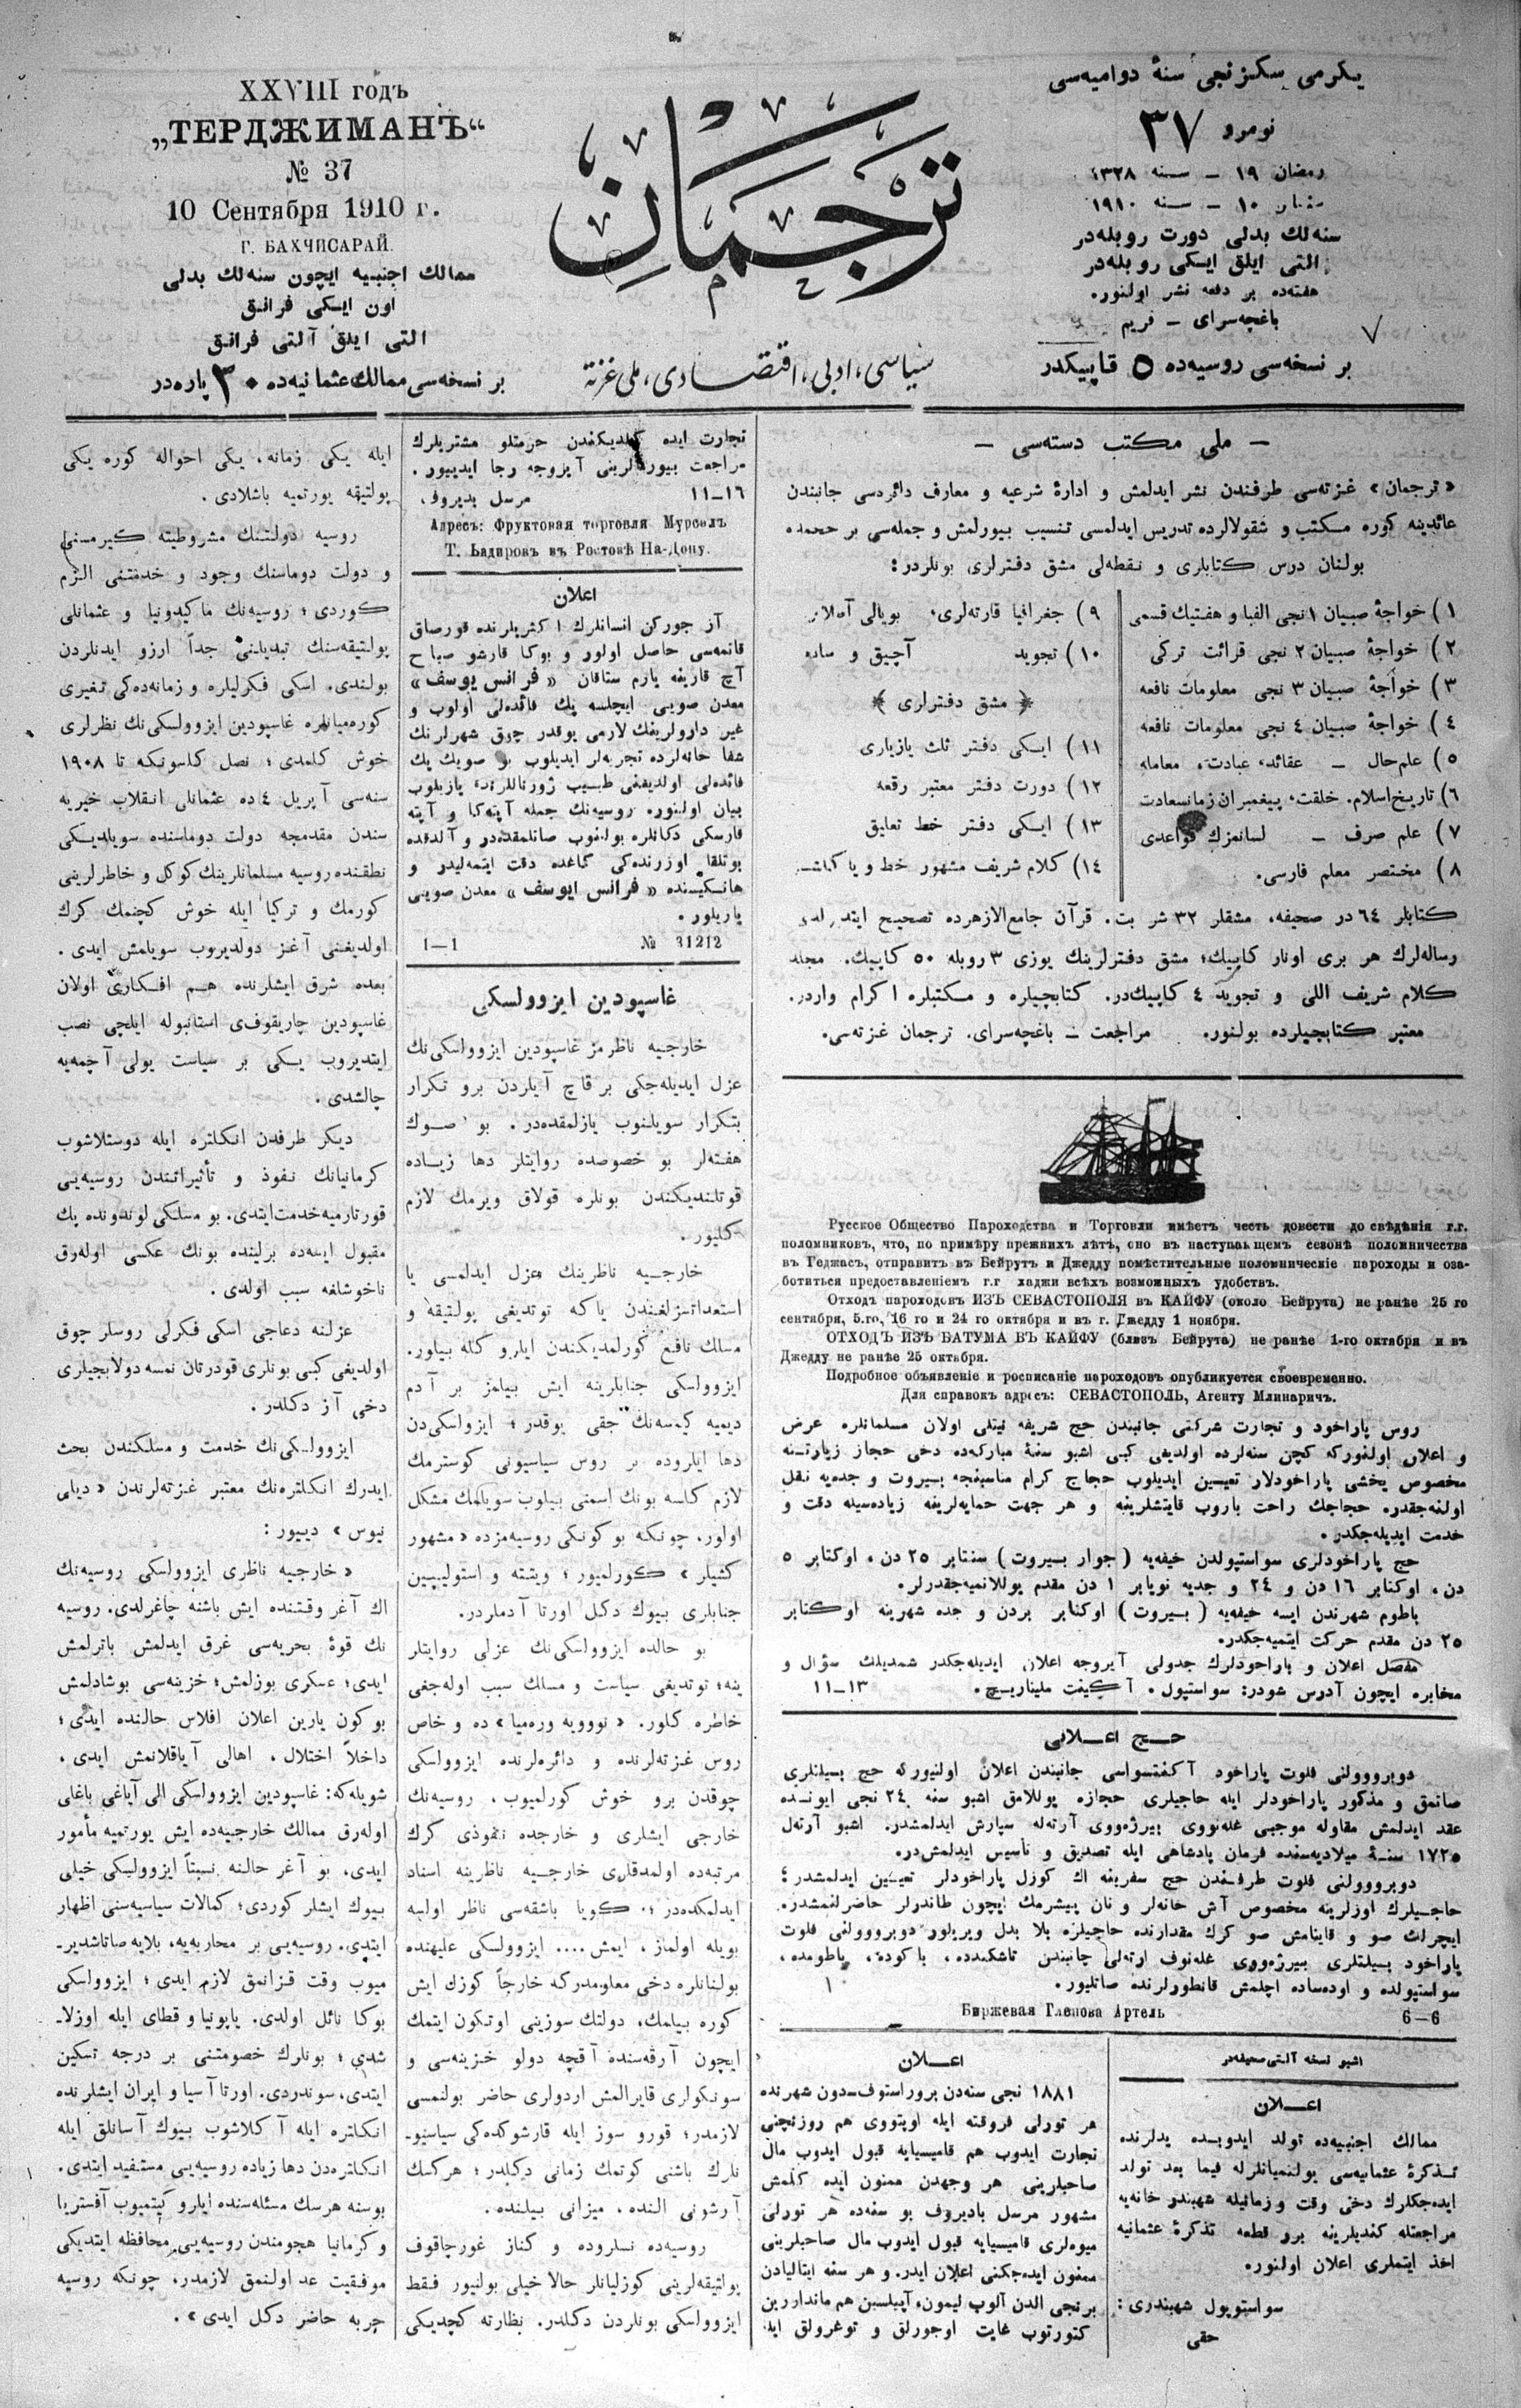 يكرمى سكزنجى سنۀ دواميه‌سى
نومرو ٣٧
رمضان ١٩ — سنه ١٣٢٨
١٠ — سنه ١٩١٠
سنه‌لك بدلى دورت روبله‌در
التى ايلق ايكى روبله‌در
هفته‌ده بر دفعه نشر اولنور.
باغچه‌سراى — قريم
بر نسخه‌سى روسيه‌ده ٥ قاپيكدر
ترجمان
سياسى، ادبى، اقتصادى، ملى غزته
XXVIII годъ
„ТЕРДЖИМАНЪ“
№ 37
10 Сентября 1910 г.
Г. БАХЧИСАРАЙ.
ممالك اجنبيه ايچون سنه‌لك بدلى
اون ايكى فرانق
التى ايلق آلتى فرانق
بر نسخه‌سى ممالك عثمانيه‌ده ٣٠ پاره‌در
— ملى مكتب دسته‌سى —
«ترجمان» غزته‌سى طرفندن نشر ايدلمش و ادارۀ شرعيه و معارف دائره‌سى جانبندن
عائدينه كوره مكتب و شقولالرده تدريس ايدلمسى تنسيب بيورلمش و جمله‌سى بر حجمده
بولنان درس كتابلرى و نقطه‌لى مشق دفترلرى بونلردر:
١) خواجۀ صبيان ١ نجى الفبا و هفتيك قسمى
٢) خواجۀ صبيان ٢ نجى قرائت تركى
٣) خواجۀ صبيان ٣ نجى معلومات نافعه
٤) خواجۀ صبيان ٤ نجى معلومات نافعه
٥) علم حال — عقائد، عبادت، معامله
٦) تاريخ اسلام. خلقت، پيغمبران زمانسعادت
٧) علم صرف — لسانمزك قواعدى
٨) مختصر معلم فارسى.
٩) جغرافيا قارته‌لرى، بويالى
١٠) تجويد آچيق و ساده
﴿ مشق دفترلرى ﴾
١١) ايكى دفتر ثلث يازيارى
١٢) دورت دفتر معتبر رقعه
١٣) ايكى دفتر خط تعايق
١٤) كلام شريف مشهور خط و پاك
كتابلر ٦٤ در صحيفه، مشقلر ٣٢ شر بت. قرآن جامع الازهرده تصحيح
رساله‌لرك هر برى اونار كاپيك؛ مشق دفترلرينك يوزى ٣ روبله ٥٠ كاپيك. مجلد
كلام شريف اللى و تجويد ٤ كاپيك‌در. كتابچيلره و مكتبلره اكرام واردر.
معتبر كتابجيلرده بولنور. مراجعت — باغچه‌سراى. ترجمان غزته‌سى.
Русское Общество Пароходства и Торговли имѣетъ честь довести до свѣдѣнія г.г.
поломниковъ, что, по примѣру прежнихъ лѣтъ, оно въ наступающемъ сезонѣ поломничества
въ Геджасъ, отправитъ въ Бейрутъ и Джедду помѣстительные поломническіе пароходы и оза-
ботиться предоставленіемъ г.г хаджи всѣхъ возможныхъ удобствъ.
Отходъ пароходовъ ИЗЪ СЕВАСТОПОЛЯ въ КАЙФУ (около Бейрута) не ранѣе 25 го
сентября, 5.го, 16 го и 24 го октября и въ г. Джедду 1 ноября.
ОТХОДЪ ИЗЪ БАТУМА ВЪ КАЙФУ (близъ Бейрута) не ранѣе 1-го октября и въ
Джедду не ранѣе 25 октября.
Подробное объявленіе и росписаніе пароходовъ опубликуется своевременно.
Для справокъ адресъ: СЕВАСТОПОЛЬ, Агенту Млинаричъ.
روس پاراخود و تجارت شركتى جانبندن حج شريفه نيتلى اولان مسلمانلره عرض
و اعلان اولنوركه كچن سنه‌لرده اولديغى كبى اشبو سنۀ مباركه‌ده دخى حجاز زيارتنه
مخصوص يخشى پاراخودلار تعيين ايديلوب حجاج كرام مناسبنجه بيروت و جده‌يه نقل
اولنه‌جقدر. حجاجك راحت باروب قايتشلرينه و هر جهت حمايه‌لرينه زياده‌سيله دقت و
خدمت ايديله‌جكدر.
حج پاراخودلرى سواستپولدن خيفه‌يه (جوار بيروت) سنتابر ٢٥ دن، اوكتابر ٥
دن، اوكتابر ١٦ دن و ٢٤ و جديه نويابر ١ دن مقدم يوللانميه‌جقدرلر.
باطوم شهرندن ايسه خيفه‌يه (بيروت) اوكتابر بردن و جده شهرينه اوكتابر
٢٥ دن مقدم حركت ايتميه‌جكدر.
مفصل اعلان و پاراخودلرك جدولى آيروجه اعلان ايديله‌جكدر شمديلك سؤال و
مخابره ايچون آدرس شودر: سواستپول. آكينت مليناريچ. ١٣—١١
حج اعلانى
دوبروولنى فلوت پاراخود آكنتسواسى جانبندن اعلان اولنيوركه حج بيلتلرى
صاتمق و مذكور پاراخودلر ايله حاجيلرى حجازه يوللامق اشبو سنه ٢٤ نجى ايونده
عقد ايدلمش مقاوله موجبى غله‌نووى بيرژه‌ووى آرته‌له سپارش ايدلمشدر. اشبو آرتل
١٧٢٥ سنۀ ميلاديه‌سنده فرمان پادشاهى ايله تصديق و تأسيس ايدلمش‌در.
دوبروولنى فلوت طرفندن حج سفرينه اك كوزل پاراخودلر تعيين ايدلمشدر؛
حاجيلرك اوزلرينه مخصوص آش خانه‌لر و نان پيشرمك ايچون طاندرلر حاضرلنمشدر.
ايچرلك صو و قاينامش صو كرك مقدارنده حاجيلره بلا بدل ويريلور دوبروولنى فلوت
پاراخود بيلتلرى بيرژه‌ووى غله‌نوف ارته‌لى جانبندن تاشكندده، باكوده، باطومده،
سواستپولده و اوده‌ساده اچلمش قانطورلرنده صاتليور.
Биржевая Гленова Артель 6—6
اشبو نسخه آلتى صحيفه‌در
اعلان
ممالك اجنبيه‌ده تولد ايدوبده يدلرنده
تذكرۀ عثمانيه‌سى بولنميانلرله فيما بعد تولد
ايده‌جكلرك دخى وقت و زمانيله شهبندر خانه‌يه
مراجعتله كنديلرينه برر قطعه تذكرۀ عثمانيه
اخذ ايتملرى اعلان اولنور.
سواستوپول شهبندرى:
حقى
اعلان
١٨٨١ نجى سنه‌دن برو راستوف-دون شهرنده
هر تورلى فروقته ايله اوپتووى هم روزنچنى
تجارت ايدوب هم قاميسيايه قبول ايدوب مال
صاحبلرينى هر وجهدن ممنون ايده كلمش
مشهور مرسل باديروف بو سنه‌ده هر تورلى
ميوه‌لرى قاميسيايه قبول ايدوب مال صاحبلرينى
ممنون ايده‌جكنى اعلان ايدر. و هر سنه ايتاليادن
برنجى الدن آلوب ليمون، آپيلسين هم ماندارين
كتورتوب غايت اوجورلق و توغرولق ايله
تجارت ايده كلديكندن حرمتلو مشتريلرك
مراجعت بيورمالرينى آيروجه رجا ايدييور.
١٦—١١ مرسل بديروف.
Адресъ: Фруктовая торговля Мурсалъ
Т. Бадировъ въ Ростовѣ На-Дону.
اعلان
آز جوركن انسانلرك اكثريلرنده قورصاق
قاتمه‌سى حاصل اولور و بوكا قارشو صباح
آچ قارينه يارم ستاقان «فرانس يوسف»
معدن صويى ايچلسه پك فائده‌لى اولوب و
غير دارولرينك لازمى يوقدر چوق شهرلرنك
شفا خانه‌لرده تجربه‌لر ايديلوب بو صويك پك
فائده‌لى اولديغى طبيب ژورناللرنده يازيلوب
بيان اولنور. روسيه‌نك جمله آپته‌كا و آپته
قارسكى دكانلره بولنوب صاتلمقده‌در و آلدقده
بوتلقا اوزرنده‌كى كاغده دقت ايتمه‌ليدر و
هانكيسنده «فرانس ايوسف» معدن صويى
ياريلور.
1—1 № 31212
غاسپودين ايزوولسكى
خارجيه ناظرمز غاسپودين ايزوولسكى‌نك
عزل ايديله‌جكى بر قاچ آيلردن برو تكرار
بتكرار سويلنوب يازلمقده‌در. بو صوك
هفته‌لر بو خصوصده روايتلر دها زياده
قوتلنديكندن بونلره قولاق ويرمك لازم
كليور.
خارجيه ناظرينك عزل ايدلمسى يا
استعدادسزلغندن ياكه توتديغى پولتيقه و
مسلك نافع كورلمديكندن ايلرو كله بيلور.
ايزوولسكى جنابلرينه ايش بيلمز بر آدم
ديميه كيمسه‌نك حقى يوقدر؛ ايزولسكى‌دن
دها ايلروده بر روس سياسيونى كوسترمك
لازم كلسه بونك اسمنى بيلوب سويلمك مشكل
اولور، چونكه بو كونكى روسيه‌مزده «مشهور
كشيلر» كورلميور؛ ويتته و استوليپين
جنابلرى بيوك دكل اورتا آدملردر.
بو حالده ايزوولسكى‌نك عزلى روايتلر
ينه؛ توتديغى سياست و مسلك سبب اوله‌جغى
خاطره كلور. «نوويه وره‌ميا» ده و خاص
روس غزته‌لرنده و دائره‌لرنده ايزوولسكى
چوقدن برو خوش كورلميوب، روسيه‌نك
خارجى ايشلرى و خارجده نفوذى كرك
مرتبه‌ده اولمدقلرى خارجيه ناظرينه اسناد
ايدلمكده‌در؛ كويا باشقه‌سى ناظر اولسه
بويله اولماز، ايمش.... ايزوولسكى عليهنده
بولنانلره دخى معلومدركه خارجاً كوزل ايش
كوره بيلمك، دولتك سوزينى اوتكون ايتمك
ايچون آرقه‌سنده آقچه دولو خزينه‌سى و
سونكولرى قايرالمش اردولرى حاضر بولنمسى
لازمدر؛ قورو سوز ايله قارشوكده‌كى سياسيو-
نلرك باشنى كوتمك زمانى دكلدر؛ هركسك
آرشونى النده، ميزانى بيلنده.
روسيه‌ده نسلروده و كناز غورچاقوف
پولتيقه‌لرينى كوزليانلر حالا خيلى بولنيور فقط
ايزوولسكى بونلردن دكلدر. نظارته كچديكى
ايله يكى زمانه، يكى احواله كوره يكى
پولتيقه يورتميه باشلادى.
روسيه دولتنك مشروطيته كيرمسنى
و دولت دوماسنك وجود و خدمتنى الزم
كوردى؛ روسيه‌نك ماكيدونيا و عثمانلى
پولتيقه‌سنك تبديلنى جداً ارزو ايدنلردن
بولندى. اسكى فكرليلره و زمانه‌ده‌كى تغيرى
كوره‌ميانلره غاسپودين ايزوولسكى‌نك نظرلرى
خوش كلمدى؛ نصل كلسونكه تا ١٩٠٨
سنه‌سى آپريل ٤ ده عثمانلى انقلاب خيريه
سندن مقدمجه دولت دوماسنده سويلديكى
نطقنده روسيه مسلمانلرينك كوكل و خاطرلرينى
كورمك و تركيا ايله خوش كچنمك كرك
اولديغنى آغز دولديروب سويلمش ايدى.
بعده شرق ايشلرنده هم افكارى اولان
غاسپودين چاريقوفى استانبوله ايلچى نصب
ايتديروب يكى بر سياست يولى آچمه‌يه
چالشدى.
ديكر طرفدن انكلتره ايله دوستلاشوب
كرمانيانك نفوذ و تأثيراتندن روسيه‌يى
قورتارميه خدمت ايتدى. بو مسلكى لوندونده پك
مقبول ايسه‌ده برلينده بونك عكسى اوله‌رق
ناخوشلغه سبب اولدى.
عزلنه دعاجى اسكى فكرلى روسلر چوق
اولديغى كبى بونلرى قودرتان نمسه دولابجيلرى
دخى آز دكلدر.
ايزوولسكى‌نك خدمت و مسلكندن بحث
ايدرك انكلتره‌نك معتبر غزته‌لرندن «ديلى
نيوس» دييور:
«خارجيه ناظرى ايزوولسكى روسيه‌نك
اك آغر وقتنده ايش باشنه چاغرلدى. روسيه
نك قوۀ بحريه‌سى غرق ايدلمش باترلمش
ايدى؛ عسكرى بوزلمش؛ خزينه‌سى بوشادلمش
بو كون يارين اعلان افلاس حالنده ايدى؛
داخلاً اختلال، اهالى آياقلانمش ايدى،
شويله‌كه: غاسپودين ايزوولسكى الى آياغى باغلى
اوله‌رق ممالك خارجيه‌ده ايش يورتميه مأمور
ايدى. بو آغر حالنه نسبتاً ايزوولسكى خيلى
بيوك ايشلر كوردى؛ كمالات سياسيه‌سنى اظهار
ايتدى. روسيه‌يى بر محاربه‌يه، بلايه صاتاشدير-
ميوب وقت قزانمق لازم ايدى؛ ايزوولسكى
بوكا نائل اولدى. ياپونيا و قطاى ايله اوزلا-
شدى؛ بونلرك خصومتنى بر درجه تسكين
ايتدى، سوندردى. اورتا آسيا و ايران ايشلرنده
انكلتره ايله آكلاشوب بيوك آسانلق ايله
انكلتره‌دن دها زياده روسيه‌يى مستفيد ايتدى.
بوسنه هرسك مسئله‌سنده ايلرو كيتميوب آفستريا
و كرمانيا هجومندن روسيه‌يى محافظه ايتديكى
موفقيت عد اولنمق لازمدر، چونكه روسيه
حربه حاضر دكل ايدى».